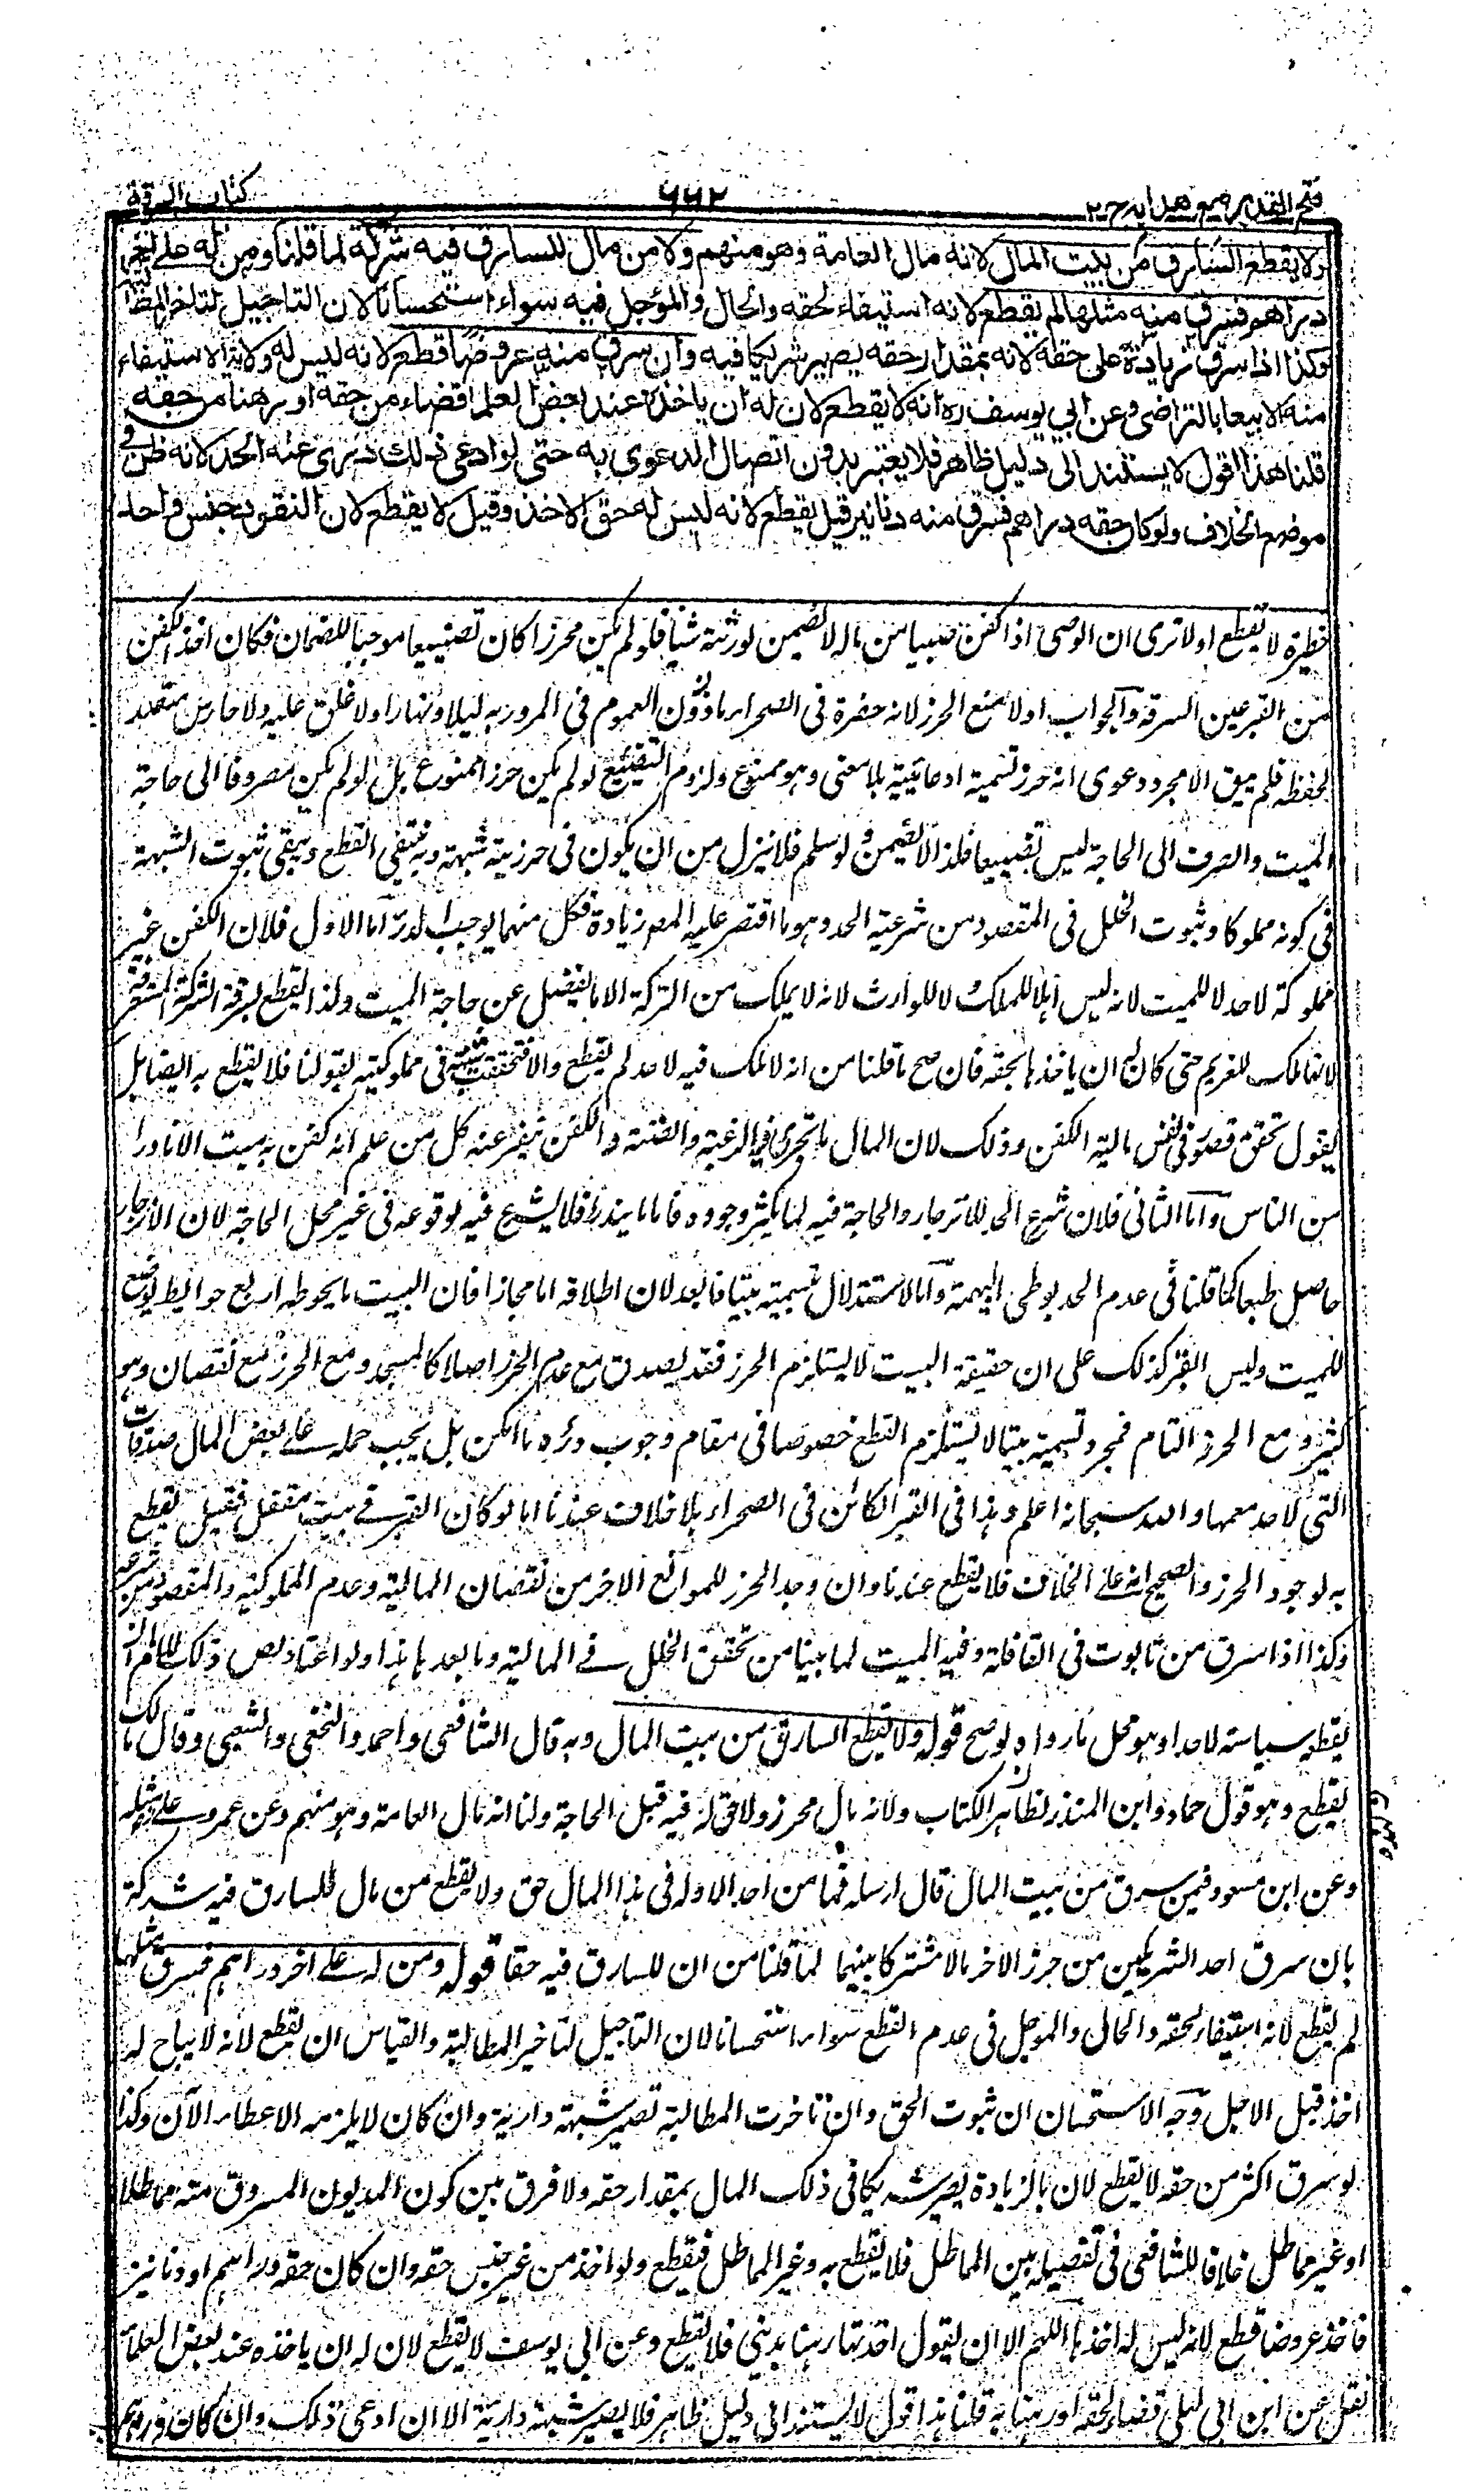 فتح القدير مع هدايه ج ٢
٦٦٢
كتاب السرقة
ولا يقطع السارق من بيت المال لانه مال العامة وهو منهم ولا من مال للسارق فيه شركة لما قلنا ومن له على اخر
دراهم فسرق منه مثلها لم يقطع لانه استيفاء لحقه والحال والمؤجل فيه سواء استحسانا لان التاجيل لتاخر المطالبة
وكذا اذا سرق زيادة على حقه لانه بمقدار حقه يصير شريكا فيه وان سرق منه عروضا قطع لانه ليس له ولاية الاستيفاء
منه الا بيعا بالتراضى وعن ابي يوسف ره انه لا يقطع لان له ان ياخذه عند بعض العلماء قضاء من حقه او رهنا من حقه
قلنا هذا القول لا يستند الى دليل ظاهر فلا يعتبر بدون اتصال الدعوى به حتى لو ادعى ذلك درئ عنه الحد لانه ظن في
موضع الخلاف ولو كان حقه دراهم فسرق منه دنانير قيل يقطع لانه ليس له حق الاخذ وقيل لا يقطع لان النقود جنس واحد
خطيرة لا يقطع اولا ترى ان الوصى اذا كفن صبيا من ماله لا يضمن لورثته شيئا فلو لم يكن محرزا كان تضييعا موجبا للضمان فكان اخذ الكفن
من القبر عين السرقة والجواب اولا بمنع الحرز لانه حفرة فى الصحراء ماذون العموم فى المرور به ليلا ونهارا ولا غلق عليه ولا حارس متصد
لحفظه فلم يبق الا مجرد دعوى انه حرز تسمية ادعائية بلا معنى وهو ممنوع ولزوم التضييع لو لم يكن حرزا ممنوع بل لو لم يكن مصروفا الى حاجة
الميت والصرف الى الحاجة ليس تضييعا فلذا لا يضمن ولو سلم فلا ينزل من ان يكون فى حرزيته شبهة وبه ينتفى القطع ويبقى ثبوت الشبهة
فى كونه مملوكا وثبوت الخلل فى المقصود من شرعية الحد وهو ما اقتصر عليه المص زيادة فكل منهما يوجب الدرء اما الاول فلان الكفن غير
مملوكة لاحد لا للميت لانه ليس اهلا للملك ولا للوارث لانه لا يملك من التركة الا ما يفضل عن حاجة الميت ولذا يقطع بسرقة التركة المستغرقة
لانها ملك للغريم حتى كان له ان ياخذها بحقه فان صح ما قلنا من انه لا ملك فيه لاحد لم يقطع والا فتحققت شبهة فى مملوكيته بقولنا فلا يقطع به ايضا بل
يقول تحقق قصور فى نفس مالية الكفن وذلك لان المال ما تجرى فيه الرغبة والضنة والكفن ينفر عنه كل من علم انه كفن به ميت الا نادرا
من الناس واما الثانى فلان شرع الحد للانزجار والحاجة فيه لما يكثر وجوده فاما ما يندر فلا يشرع فيه لوقوعه فى غير محل الحاجة لان الانزجار
حاصل طبعا كما قلنا فى عدم الحد بوطى البهيمة واما الاستدلال بتسميته بيتا فابعد لان اطلاقه اما مجازا فان البيت ما يحوطه اربع حوائط يوضع
للميت وليس القبر كذلك على ان حقيقة البيت لا يستلزم الحرز فقد يصدق مع عدم الحرز اصلا كالمسجد ومع الحرز مع نقصان وهو
كثير ومع الحرز التام فمجرد تسميته بيتا لا يستلزم القطع خصوصا فى مقام وجوب درئه ما امكن بل يجب حمله على بعض المال صدقات
التى لا حد معها والله سبحانه اعلم وهذا فى القبر الكائن فى الصحراء بلا خلاف عندنا اما لو كان القبر فى بيت مقفل فقيل يقطع
به لوجود الحرز والصحيح انه على الخلاف فلا يقطع عندنا وان وجد الحرز للموانع الاخر من نقصان المالية وعدم المملوكية والمقصود من شرعه
وكذا اذا سرق من تابوت فى القافلة وفيه الميت لما بينا من تحقق الخلل فى المالية وما بعدها هذا ولو اعتاد لص ذلك للامام ان
يقطعه سياسة لا حدا وهو محل ما رواه لو صح قوله ولا يقطع السارق من بيت المال وبه قال الشافعى واحمد والنخعى والشعبى وقال مالك
يقطع وهو قول حماد وابن المنذر لظاهر الكتاب ولانه مال محرز ولا حق له فيه قبل الحاجة ولنا انه مال العامة وهو منهم وعن عمر وعلى مثله
وعن ابن مسعود فيمن سرق من بيت المال قال ارسله فما من احد الا وله فى هذا المال حق ولا يقطع من مال للسارق فيه شركة
بان سرق احد الشريكين من حرز الاخر مالا مشتركا بينهما لما قلنا من ان للسارق فيه حقا قوله ومن له على اخر دراهم فسرق مثلها
لم يقطع لانه استيفاء لحقه والحال والموجل فى عدم القطع سواء استحسانا لان التاجيل لتاخير المطالبة والقياس ان يقطع لانه لا يباح له
اخذه قبل الاجل وجه الاستحسان ان ثبوت الحق وان تاخرت المطالبة تصير شبهة دارئة وان كان لا يلزمه الاعطاء الآن وكذا
لو سرق اكثر من حقه لا يقطع لان بالزيادة يصير شريكا فى ذلك المال بمقدار حقه ولا فرق بين كون المديون المسروق منه مماطلا
او غير مماطل خلافا للشافعى فى تفصيله بين المماطل فلا يقطع به وغير المماطل فيقطع ولو اخذ من غير جنس حقه وان كان حقه دراهم او دنانيز
فاخذ عروضا قطع لانه ليس له اخذها اللهم الا ان يقول اخذتها رهنا بدينى فلا يقطع وعن ابى يوسف لا يقطع لان له ان ياخذه عند بعض العلماء
نقل عن ابن ابى ليلى قضاء لحقه او رهنا به قلنا هذا قول لا يستند الى دليل ظاهر فلا يصير شبهة دارئة الا ان ادعى ذلك وان كان دراهم